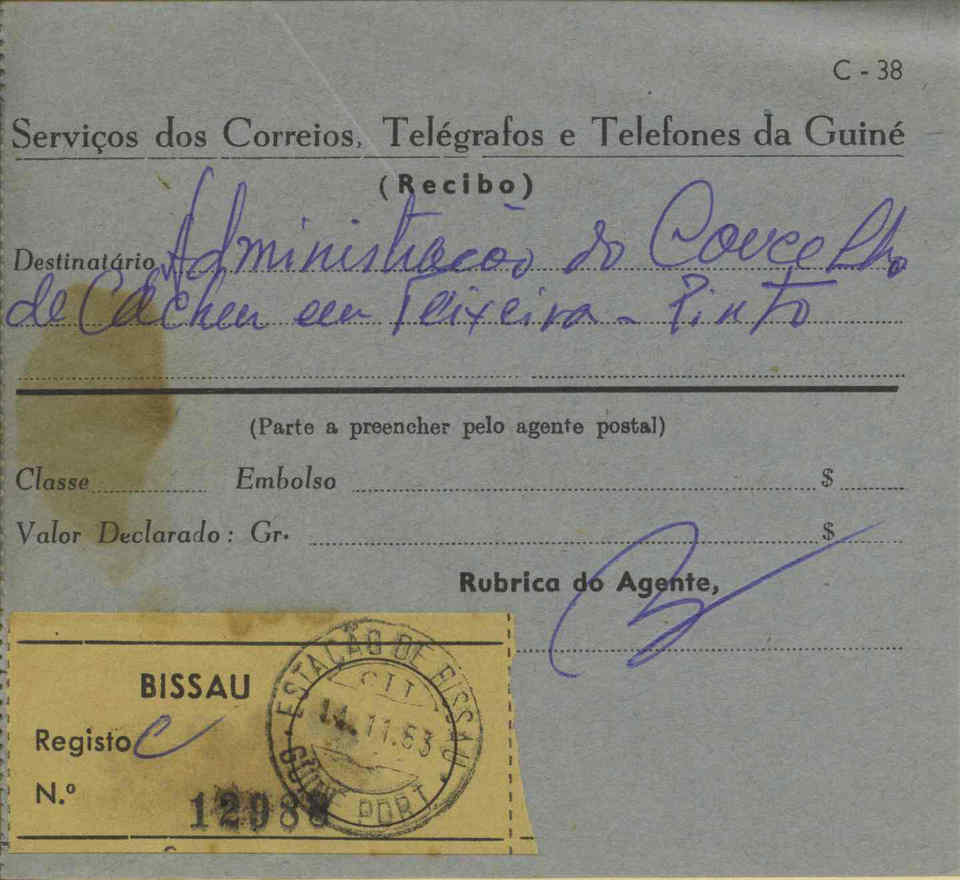 C - 38
Serviços dos Correios, Telégrafos e Telefones da Guiné
(Recibo)
Destinatário Administração do Concelho
de Cacheu em Teixeira - Pinto
(Parte a preencher pelo agente postal)
Classe Embolso $
Valor Declarado: Gr. $
Rubrica do Agente,
BISSAU
Registo C
N.º 12988
ESTAÇÃO DE BISSAU
CTT
14.11.63
GUINÉ PORT.